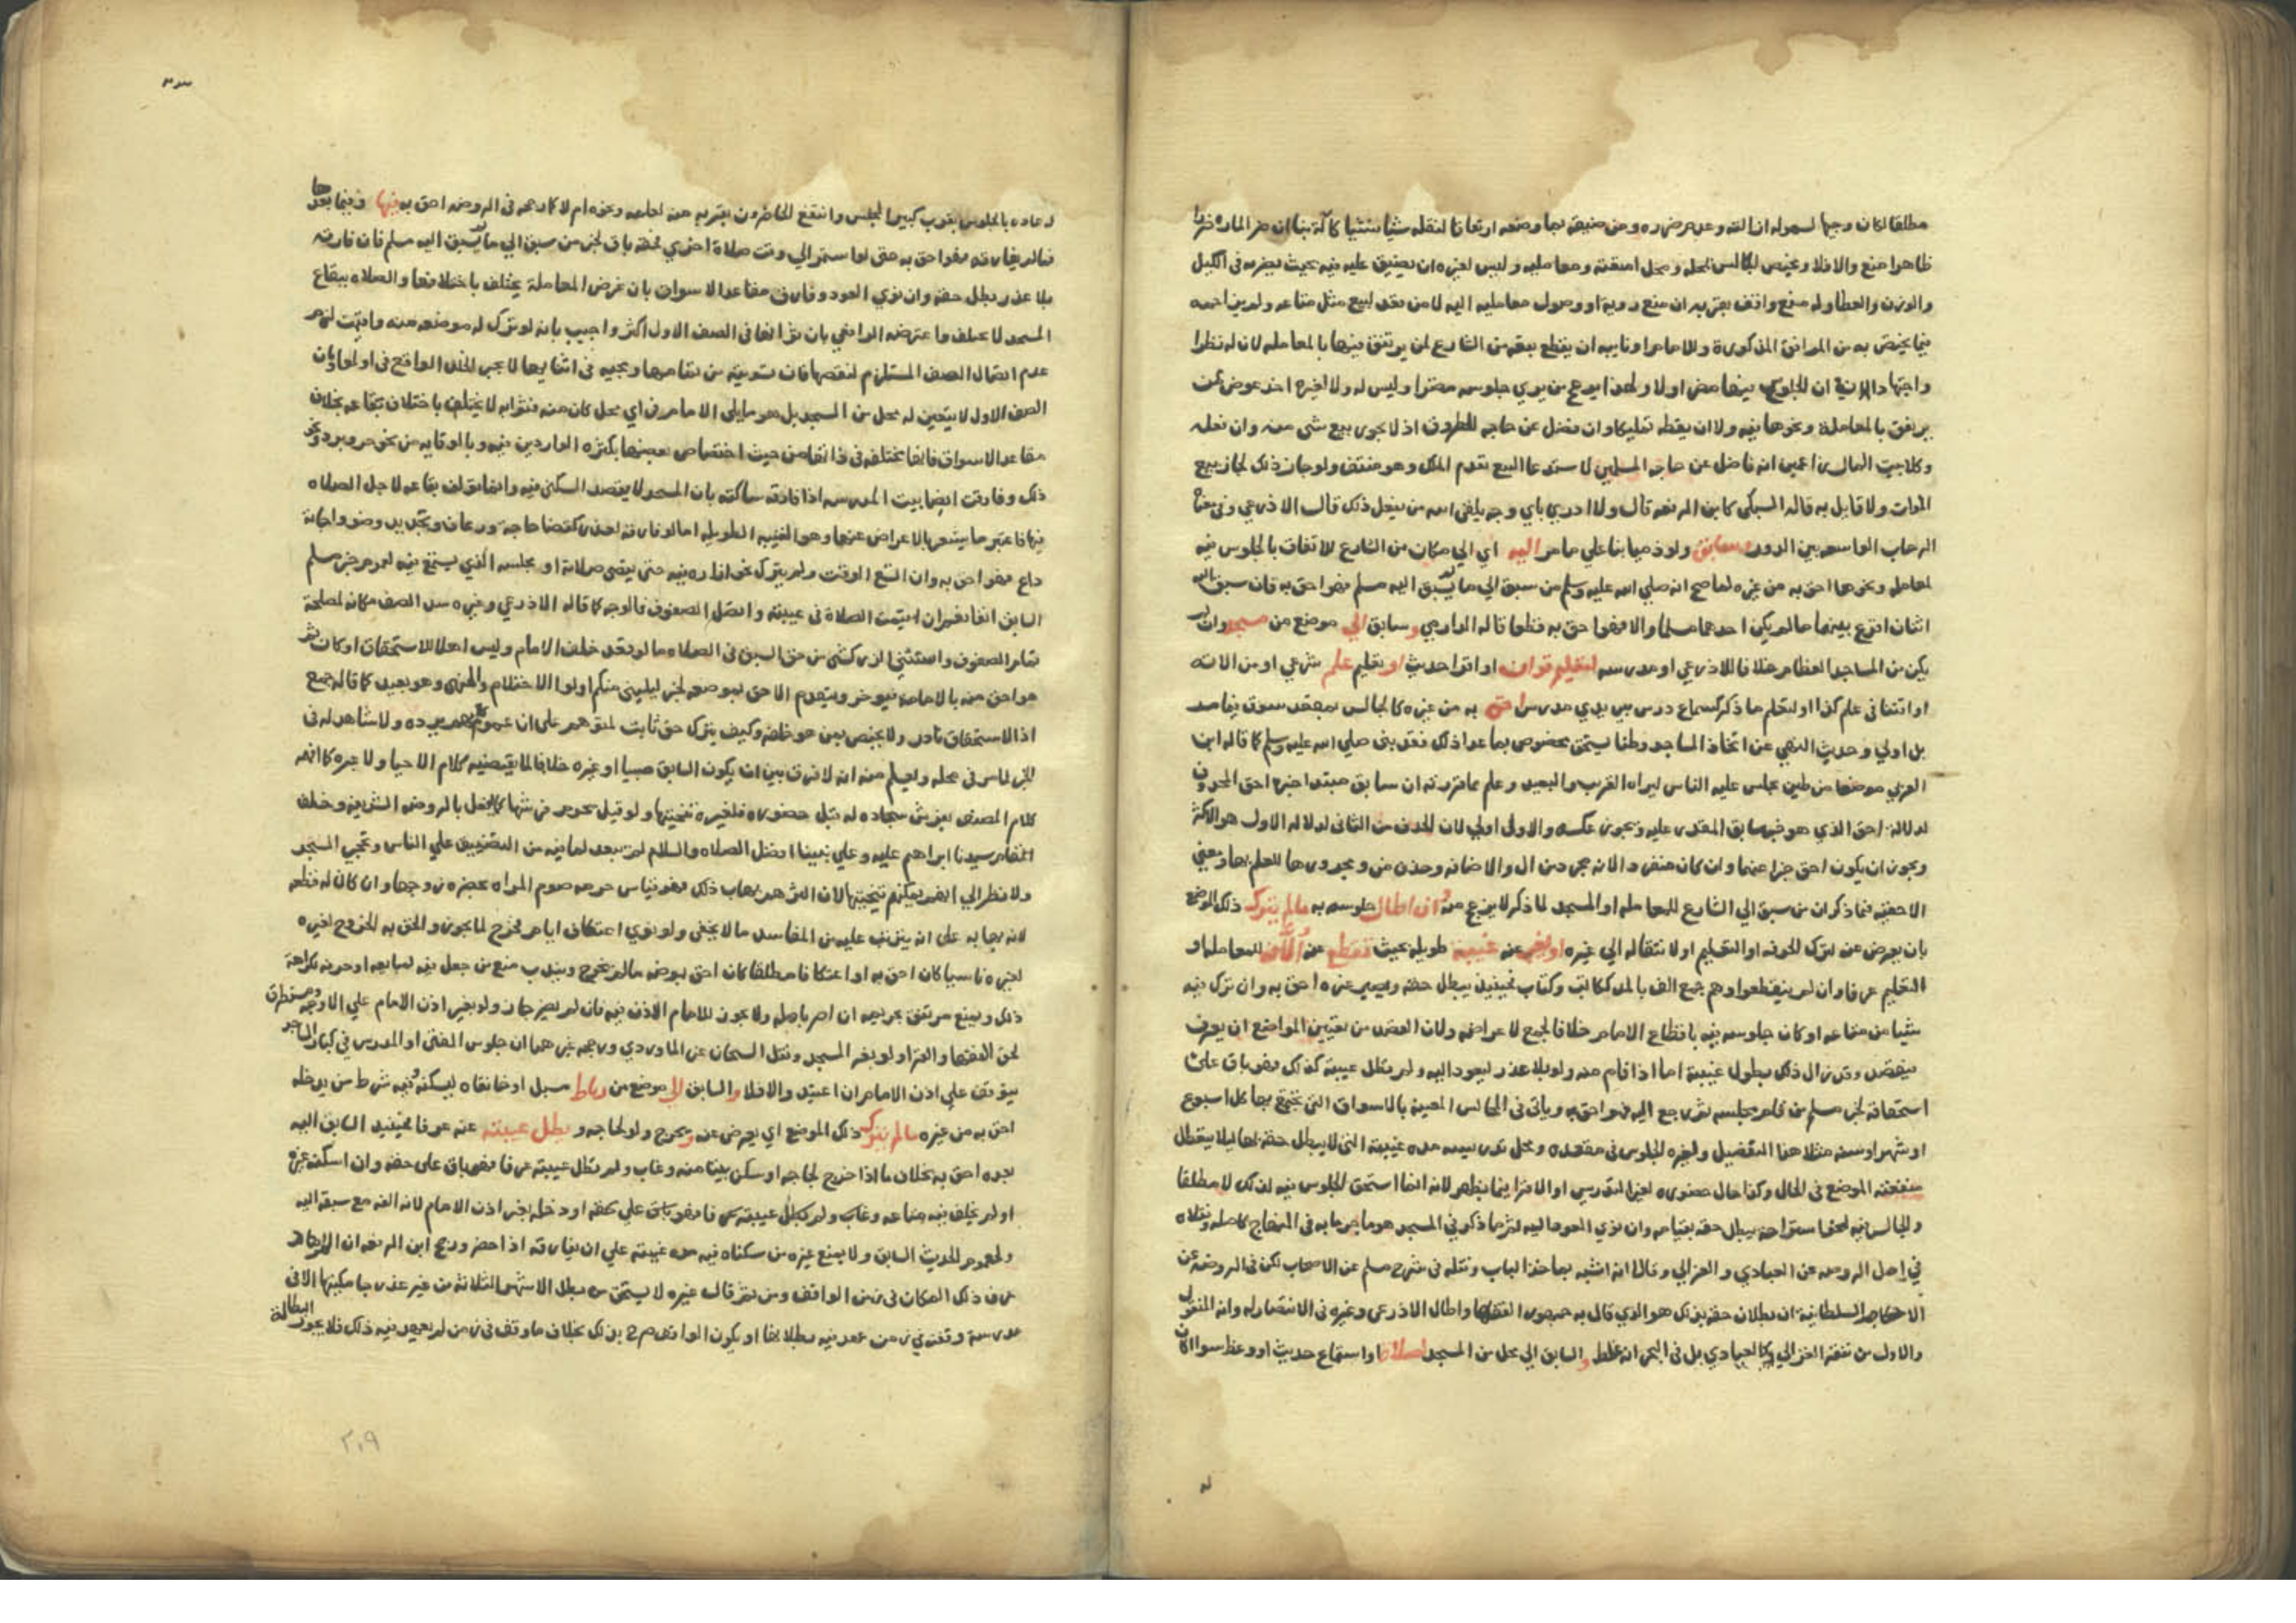 مطلقا لكان وجيها لسهولة ازالته وعدم ضرره ومن
ظاهرا منع والا فلا ويختص الجالس بمحله ومحل امتعته ومعامليه وليس لغيره ان يضيق عليه فيه بحيث يضر به في الكيل
والوزن والعطا وله منع واقف بقربه ان منع رويه او وصول معامليه اليه لا من قعد لبيع مثل متاعه ولم يزاحمه
فيما يختص به من المرافق المذكورة وللامام او نايبه ان يقطع بقعة من الشارع لمن يرتفق فيها بالمعامله لان له نظرا
واجتهادا في ان الجلوس فيها مضر اولا ولهذا يزعج من يري جلوسه مضرا وليس له ولا لغيره اخذ عوض ممن
يرتفق بالمعاملة ونحوها فيه ولا ان يقطه تمليكا وان فضل عن حاجة الطروق اذ لا يجوز بيع شي منه وان فعله
وكلا بيت المال زاعمين انه فاضل عن حاجة المسلمين لاستدعا البيع تقدم الملك وهو منتف ولو جاز ذلك لجاز بيع
الموات ولا قايل به قاله السبكي كابن الرفعه قال ولا ادري باي وجه يلقى الله من يفعل ذلك قال الاذرعي وفي معناه
الرحاب الواسعه بين الدور ولو ذميا بنا علي ما مر اليه اي الي مكان من الشارع للارتفاق بالجلوس فيه
لمعامله ونحوها احق به من غيره لما صح انه صلي الله عليه وسلم من سبق الي ما لم يسبق اليه مسلم فهو احق به فان سبق اليه
اثنان اقرع بينهما ما لم يكن احدهما مسلما والا فهو احق به قطعا قاله الدارمي وسابق الي موضع من مسجد وان لم
يكن من المساجد العظام خلافا للاذرعي او مدرسه لتعليم قران او اقرا حديث او تعليم علم شرعي او من الاته
او افتا في علم كذا او لتعلم ما ذكر كسماع درس بين يدي مدرس احق به من غيره كالجالس بمقعد سوق
بل اولي وحديث النهي عن اتخاذ المساجد وطنا يستحق مخصوص بما عدا ذلك فقد بني صلي الله عليه وسلم كما قاله ابن
العربي موضعا من طين يجلس عليه الناس ليراه القريب والبعيد وعلم مما قررته ان سابق مبتدا خبره احق المحذوف
لدلالة احق الذي هو خبر سابق المقدر عليه ويجوز عكسه والاولى اولي لان الحذف من الثاني لدلالة الاول هو الاكثر
ويجوز ان يكون احق خبرا عنهما وان كان مفردا لانه مجرد من ال والاضافه وحذف من ومجرورها للعلم بها
الاحقية فيما ذكر ان من سبق الي الشارع للمعامله او المسجد لما ذكر لا يزعج منه وان اطال جلوسه به ما لم يترك ذلك الموضع
بان يعرض عنه لترك الحرفه او التعليم او لانتقاله الي غيره او يغيب عنه غيبة طويلة بحيث تنقطع عن الالاف للمعامله او
التعليم عرفا وان لم ينقطعوا وهم جمع الف بالمد ككاتب وكتاب فحينئذ يبطل حقه ويصير غيره احق به وان ترك فيه
شيا من متاعه او كان جلوسه فيه باقطاع الامام خلافا لجمع لاعراضه ولان الغرض من تعيين المواضع ان يعرف
فيقصد وقد زال ذلك بطول غيبته اما اذا قام منه ولو بلا عذر ليعود اليه ولم تطل غيبته كذلك فهو باق علي
استحقاقه لخبر مسلم من قام من مجلسه ثم رجع اليه فهو احق به وياتي في المجالس المعينة بالاسواق التي تجتمع بها كل اسبوع
او شهر او سنه مثلا هذا التفصيل ولغيره الجلوس في مقعده ومحل تدريسه مده غيبته التي لا يبطل حقه بها ليلا يتعطل
منفعة الموضع في الحال وكذا حال حضوره لغير التدريس او الاقرا فيما يظهر لانه انما استحق الجلوس فيه لذلك لا مطلقا
والجالس فيه لنحو استراحة يبطل حقه بقيامه وان نوي العود اليه ثم ما ذكر في المسجد هو ما جزما به في المنهاج كاصله ونقلاه
في اصل الروضه عن العبادي والغزالي وقالا انه اشبه بماخذ الباب ونقله في شرح مسلم عن الاصحاب لكن في الروضة عن
الاحكام السلطانية ان بطلان حقه بذلك هو الذي قال به جمهور الفقها واطال الاذرعي وغيره في الانتصار له وانه المنقول
والاول من تفقه الغزالي وكذا العبادي بل في البحر انه غلط والسابق الي محل من المسجد لصلاة او استماع حديث او وعظ سوا اكان
له
٣
له عاده بالجلوس بقرب كبير المجلس وانتفع الحاضرون بقربه منه لعلمه ونحوه ام لا كما رجحه في الروضه احق به فيها وفيما بعدها
ما لم يفارقه فهو احق به حتي لو استمر الي وقت صلاة اخري فحقه باق لخبر من سبق الي ما لم يسبق اليه مسلم فان فارقه
بلا عذر بطل حقه وان نوي العود وفارق مقاعد الاسواق بان غرض المعاملة يختلف باختلافها والصلاه ببقاع
المسجد لا تختلف واعترضه الرافعي بان ثوابها في الصف الاول اكثر واجيب بانه لو ترك له موضعه منه واقيمت لزم
عدم اتصال الصف المستلزم لنقصها فان تسويته من تمامها ومجيه في اثنايها لا يجبر الخلل الواقع في اولها وبان
الصف الاول لا يتعين له محل من المسجد بل هو ما يلي الامام في اي محل كان منه فثوابه لا يختلف باختلاف بقاعه بخلاف
مقاعد الاسواق فانها تختلف في ذاتها من حيث اختصاص بعضها بكثرة الواردين فيه وبالوقاية من نحو حر وبرد ونحو
ذلك وفارقت ايضا بيت المدرسه اذا فارقه ساكنه بان المسجد لا يقصد السكني فيه وانما يولف بقاعه لاجل الصلاه
فيها فاعتبر ما يشعر بالاعراض عنها وهو الغيبه الطويله اما لو فارقه لعذر كقضا حاجة ورعاف وتجديد وضو واجابة
داع فهو احق به وان اتسع الوقت ولم يترك نحو ازاره فيه حتي يقضي صلاته او مجلسه الذي يستمع فيه لعموم خبر مسلم
السابق انفا نعم ان اقيمت الصلاة في غيبته واتصل الصفوف فالوجه كما قاله الاذرعي وغيره سد الصف مكانه لمصلحة
تمام الصفوف واستثني الزركشي من حق السبق في الصلاه ما لو قعد خلف الامام وليس اهلا للاستحقاق او كان ثم
من هو احق منه بالامامة فيوخر ويتقدم الاحق بموضعه لخبر ليليني منكم اولوا الاحلام والنهي وهو بعيد كما قاله جمع
اذ الاستحقاق نادر ولا يختص بمن هو خلفه وكيف يترك حق ثابت لمتوهم علي ان عموم كلامهم يرده ولا شاهد له في
الخبر لما مر في محله ويعلم منه انه لا فرق بين ان يكون السابق صبيا او غيره خلافا لما يقتضيه كلام الاحيا ولا عبرة كما افهمه
كلام المصنف بفرش سجاده له قبل حضوره فلغيره تنحيتها ولو قيل بحرمة فرشها كما يفعل بالروضه الشريفه وخلف
المقام سيدنا ابراهيم عليه وعلي نبينا افضل الصلاه والسلام لم يبعد لما فيه من التضييق علي الناس وتحجير المسجد
ولا نظر الي انهم يمكنهم تنحيتها لان اكثرهم يهاب ذلك فهو قياس حرمه صوم المراه بحضرة زوجها وان كان له قطعه
لانه يهابه علي انه يترتب عليه من المفاسد ما لا يخفي ولو نوي اعتكاف ايام فخرج لما يجوز والحق به الخروج لغيره
لغيره ناسيا كان احق به او اعتكافا مطلقا كان احق بموضعه ما لم يخرج ويندب منع من جعل فيه لمبايعه او حرفه لكراهة
ذلك ويمنع مرتفق بحريمه ان اضر باهله ولا يجوز للامام الاذن فيه فان لم يضر جاز ولو بغير اذن الامام علي الاوجه ومستطرق
لحق الفقها والقرا ولو بغير المسجد ونقل الشيخان عن الماوردي ورجحه غيرهما ان جلوس المفتي او المدرس في كبار المساجد
يتوقف علي اذن الامام ان اعتيد والا فلا والسابق لا موضع من رباط مسبل او خانقاه ليسكنه وفيه شرط من يدخله
احق به من غيره ما لم يترك ذلك الموضع اي يعرض عنه ويخرج ولو لحاجه وتطل غيبته عنه عرفا فحينئذ السابق اليه
بعده احق به بخلاف ما اذا خرج لحاجه او سكن بيتا منه وغاب ولم تطل غيبته عرفا فهو باق علي حقه وان اسكنه غيره
او لم يخلف فيه متاعه وغاب ولم تطل غيبته عرفا فهو باق علي حقه او دخله بغير اذن الامام لانه الفه مع سبقه اليه
ولعموم الحديث السابق ولا يمنع غيره من سكناه فيه مدة غيبته علي ان يفارقه اذا حضر ورجح ابن الرفعه ان
عرف ذلك المكان في زمن الواقف ومن ثم قال غيره لا يستحق من بطل الاشهر الثلاثة من غير عذر جامكيتها الا في
مدرسة وقفت في زمن عهد فيه بطلانها او يكون الواقف بذلك بخلاف ما وقف في زمن لم يعهد فيه ذلك فلا يجوز البطالة
٢٠٩